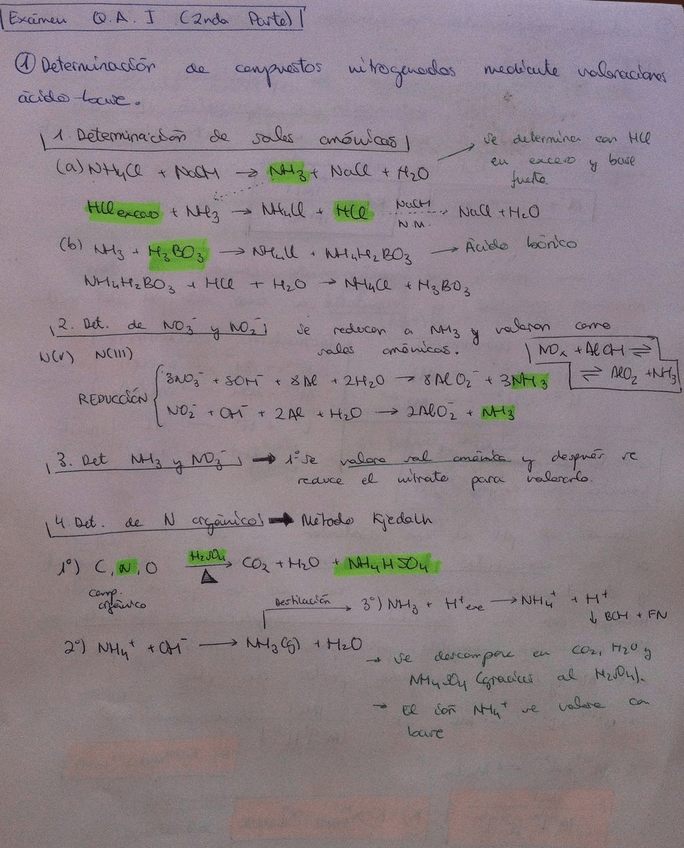 Exámen Q.A. I (2nda Parte)
① Determinación de compuestos nitrogenados mediante valoraciones
ácido-base.
1. Determinación de sales amónicas
(a) NH4Cl + NaOH → NH3 + NaCl + H2O → se determina con HCl
en exceso y base
fuerte
HCl exceso + NH3 → NH4Cl + HCl NaOH N.M. NaCl + H2O
(b) NH3 + H3BO3 → NH4Cl + NH4H2BO3 → Ácido bórico
NH4H2BO3 + HCl + H2O → NH4Cl + H3BO3
2. Det. de NO3⁻ y NO2⁻ se reducen a NH3 y valoran como
sales amónicas.
N(V) N(III)
NOx + AlOH ⇌
⇌ AlO2 + NH3
REDUCCIÓN
3NO3⁻ + 5OH⁻ + 8Al + 2H2O → 8AlO2⁻ + 3NH3
NO2⁻ + OH⁻ + 2Al + H2O → 2AlO2⁻ + NH3
3. Det NH3 y NO3⁻ → 1º se valora sal amónica y después se
reduce el nitrato para valorarlo.
4 Det. de N orgánico → Método Kjedalh
1º) C, N, O H2SO4 → CO2 + H2O + NH4HSO4
comp.
orgánico
Destilación → 3º) NH3 + H⁺exc → NH4⁺ + H⁺
↓ BCH + FN
2º) NH4⁺ + OH⁻ → NH3(g) + H2O
→ se descompone en CO2, H2O y
NH4SO4 (gracias al H2SO4).
→ El ión NH4⁺ se valora con
base